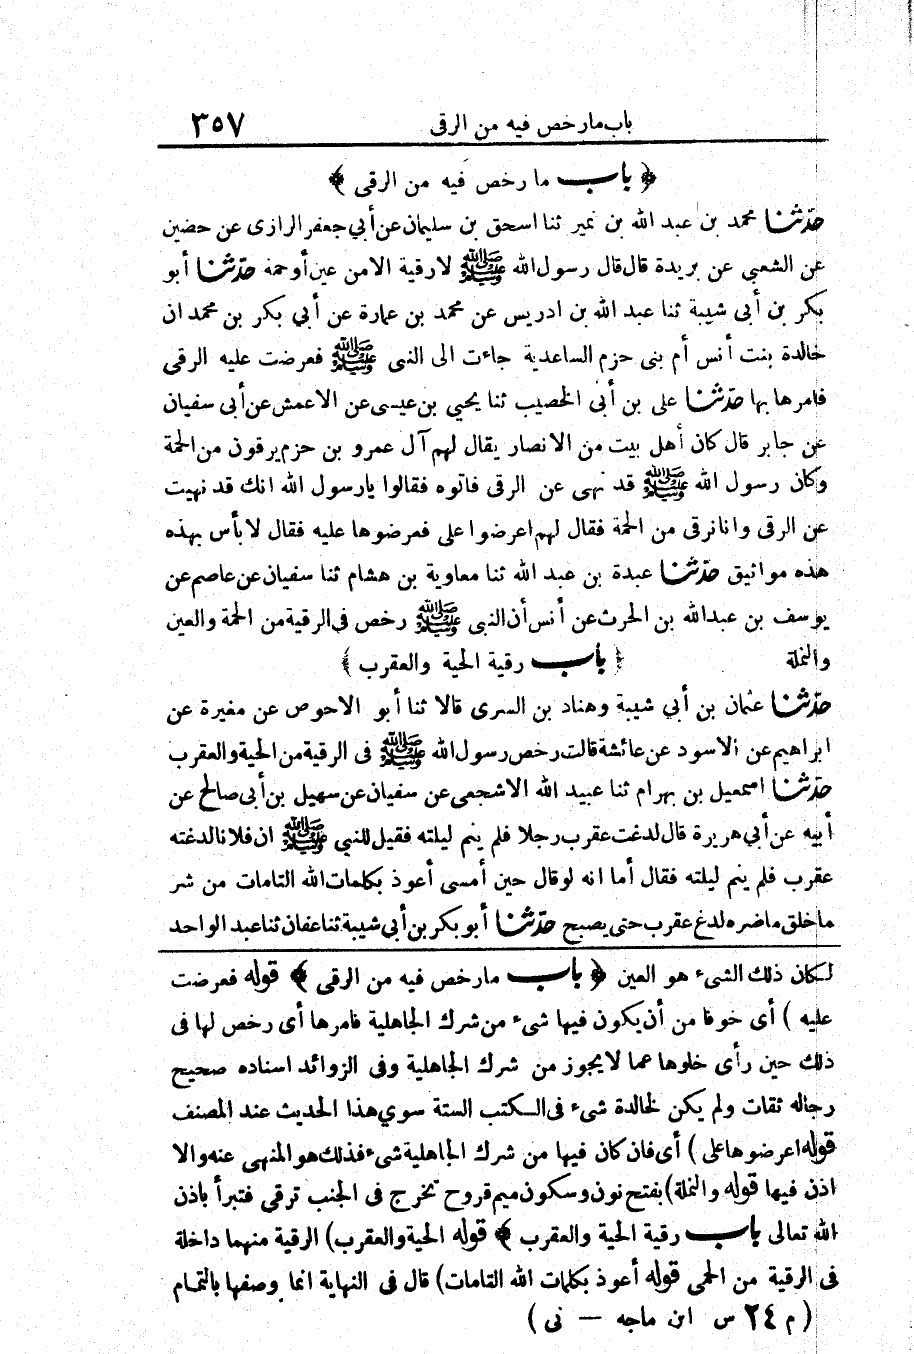 باب مارخص فيه من الرقى ٣٥٧
﴿ باب ما رخص فيه من الرقى ﴾
حدّثنا محمد بن عبد الله بن نمير ثنا اسحق بن سليمان عن أبي جعفر الرازى عن حضين
عن الشعبي عن بريدة قال قال رسول الله ﷺ لا رقية الا من عين أو حمة حدّثنا أبو
بكر بن أبى شيبة ثنا عبد الله بن ادريس عن محمد بن عمارة عن أبي بكر بن محمد ان
خالدة بنت أنس أم بنى حزم الساعدية جاءت الى النبى ﷺ فعرضت عليه الرقى
فامرها بها حدّثنا على بن أبى الخصيب ثنا يحيى بن عيسى عن الاعمش عن أبى سفيان
عن جابر قال كان أهل بيت من الانصار يقال لهم آل عمرو بن حزم يرقون من الحمة
وكان رسول الله ﷺ قد نهى عن الرقى فاتوه فقالوا يارسول الله انك قد نهيت
عن الرقى وانا نرقى من الحمة فقال لهم اعرضوا على فعرضوها عليه فقال لا بأس بهذه
هذه مواثيق حدّثنا عبدة بن عبد الله ثنا معاوية بن هشام ثنا سفيان عن عاصم عن
يوسف بن عبدالله بن الحرث عن أنس أن النبى ﷺ رخص فى الرقية من الحمة والعين
والنملة ﴿ باب رقية الحية والعقرب ﴾
حدّثنا عثمان بن أبي شيبة وهناد بن السرى قالا ثنا أبو الاحوص عن مغيرة عن
ابراهيم عن الاسود عن عائشة قالت رخص رسول الله ﷺ فى الرقية من الحية والعقرب
حدّثنا اسمعيل بن بهرام ثنا عبيد الله الاشجعى عن سفيان عن سهيل بن أبى صالح عن
أبيه عن أبى هريرة قال لدغت عقرب رجلا فلم ينم ليلته فقيل للنبي ﷺ ان فلانا لدغته
عقرب فلم ينم ليلته فقال أما انه لو قال حين أمسى أعوذ بكلمات الله التامات من شر
ما خلق ما ضره لدغ عقرب حتى يصبح حدّثنا أبو بكر بن أبي شيبة ثنا عفان ثنا عبد الواحد
لكان ذلك الشىء هو العين ﴿ باب مارخص فيه من الرقى ﴾ قوله فعرضت
عليه ) أى خوفا من أن يكون فيها شىء من شرك الجاهلية فامرها أى رخص لها فى
ذلك حين رأى خلوها عما لا يجوز من شرك الجاهلية وفى الزوائد اسناده صحيح
رجاله ثقات ولم يكن لخالدة شىء فى الكتب الستة سوي هذا الحديث عند المصنف
قوله اعرضوها على ) أى فان كان فيها من شرك الجاهلية شىء فذلك هو المنهى عنه والا
اذن فيها قوله والنملة) بفتح نون وسكون ميم قروح تخرج فى الجنب ترقي فتبرأ باذن
الله تعالى باب رقية الحية والعقرب ﴾ قوله الحية والعقرب) الرقية منهما داخلة
فى الرقية من الحمى قوله أعوذ بكلمات الله التامات) قال فى النهاية انما وصفها بالتمام
( م ٢٤ س ابن ماجه — نى )